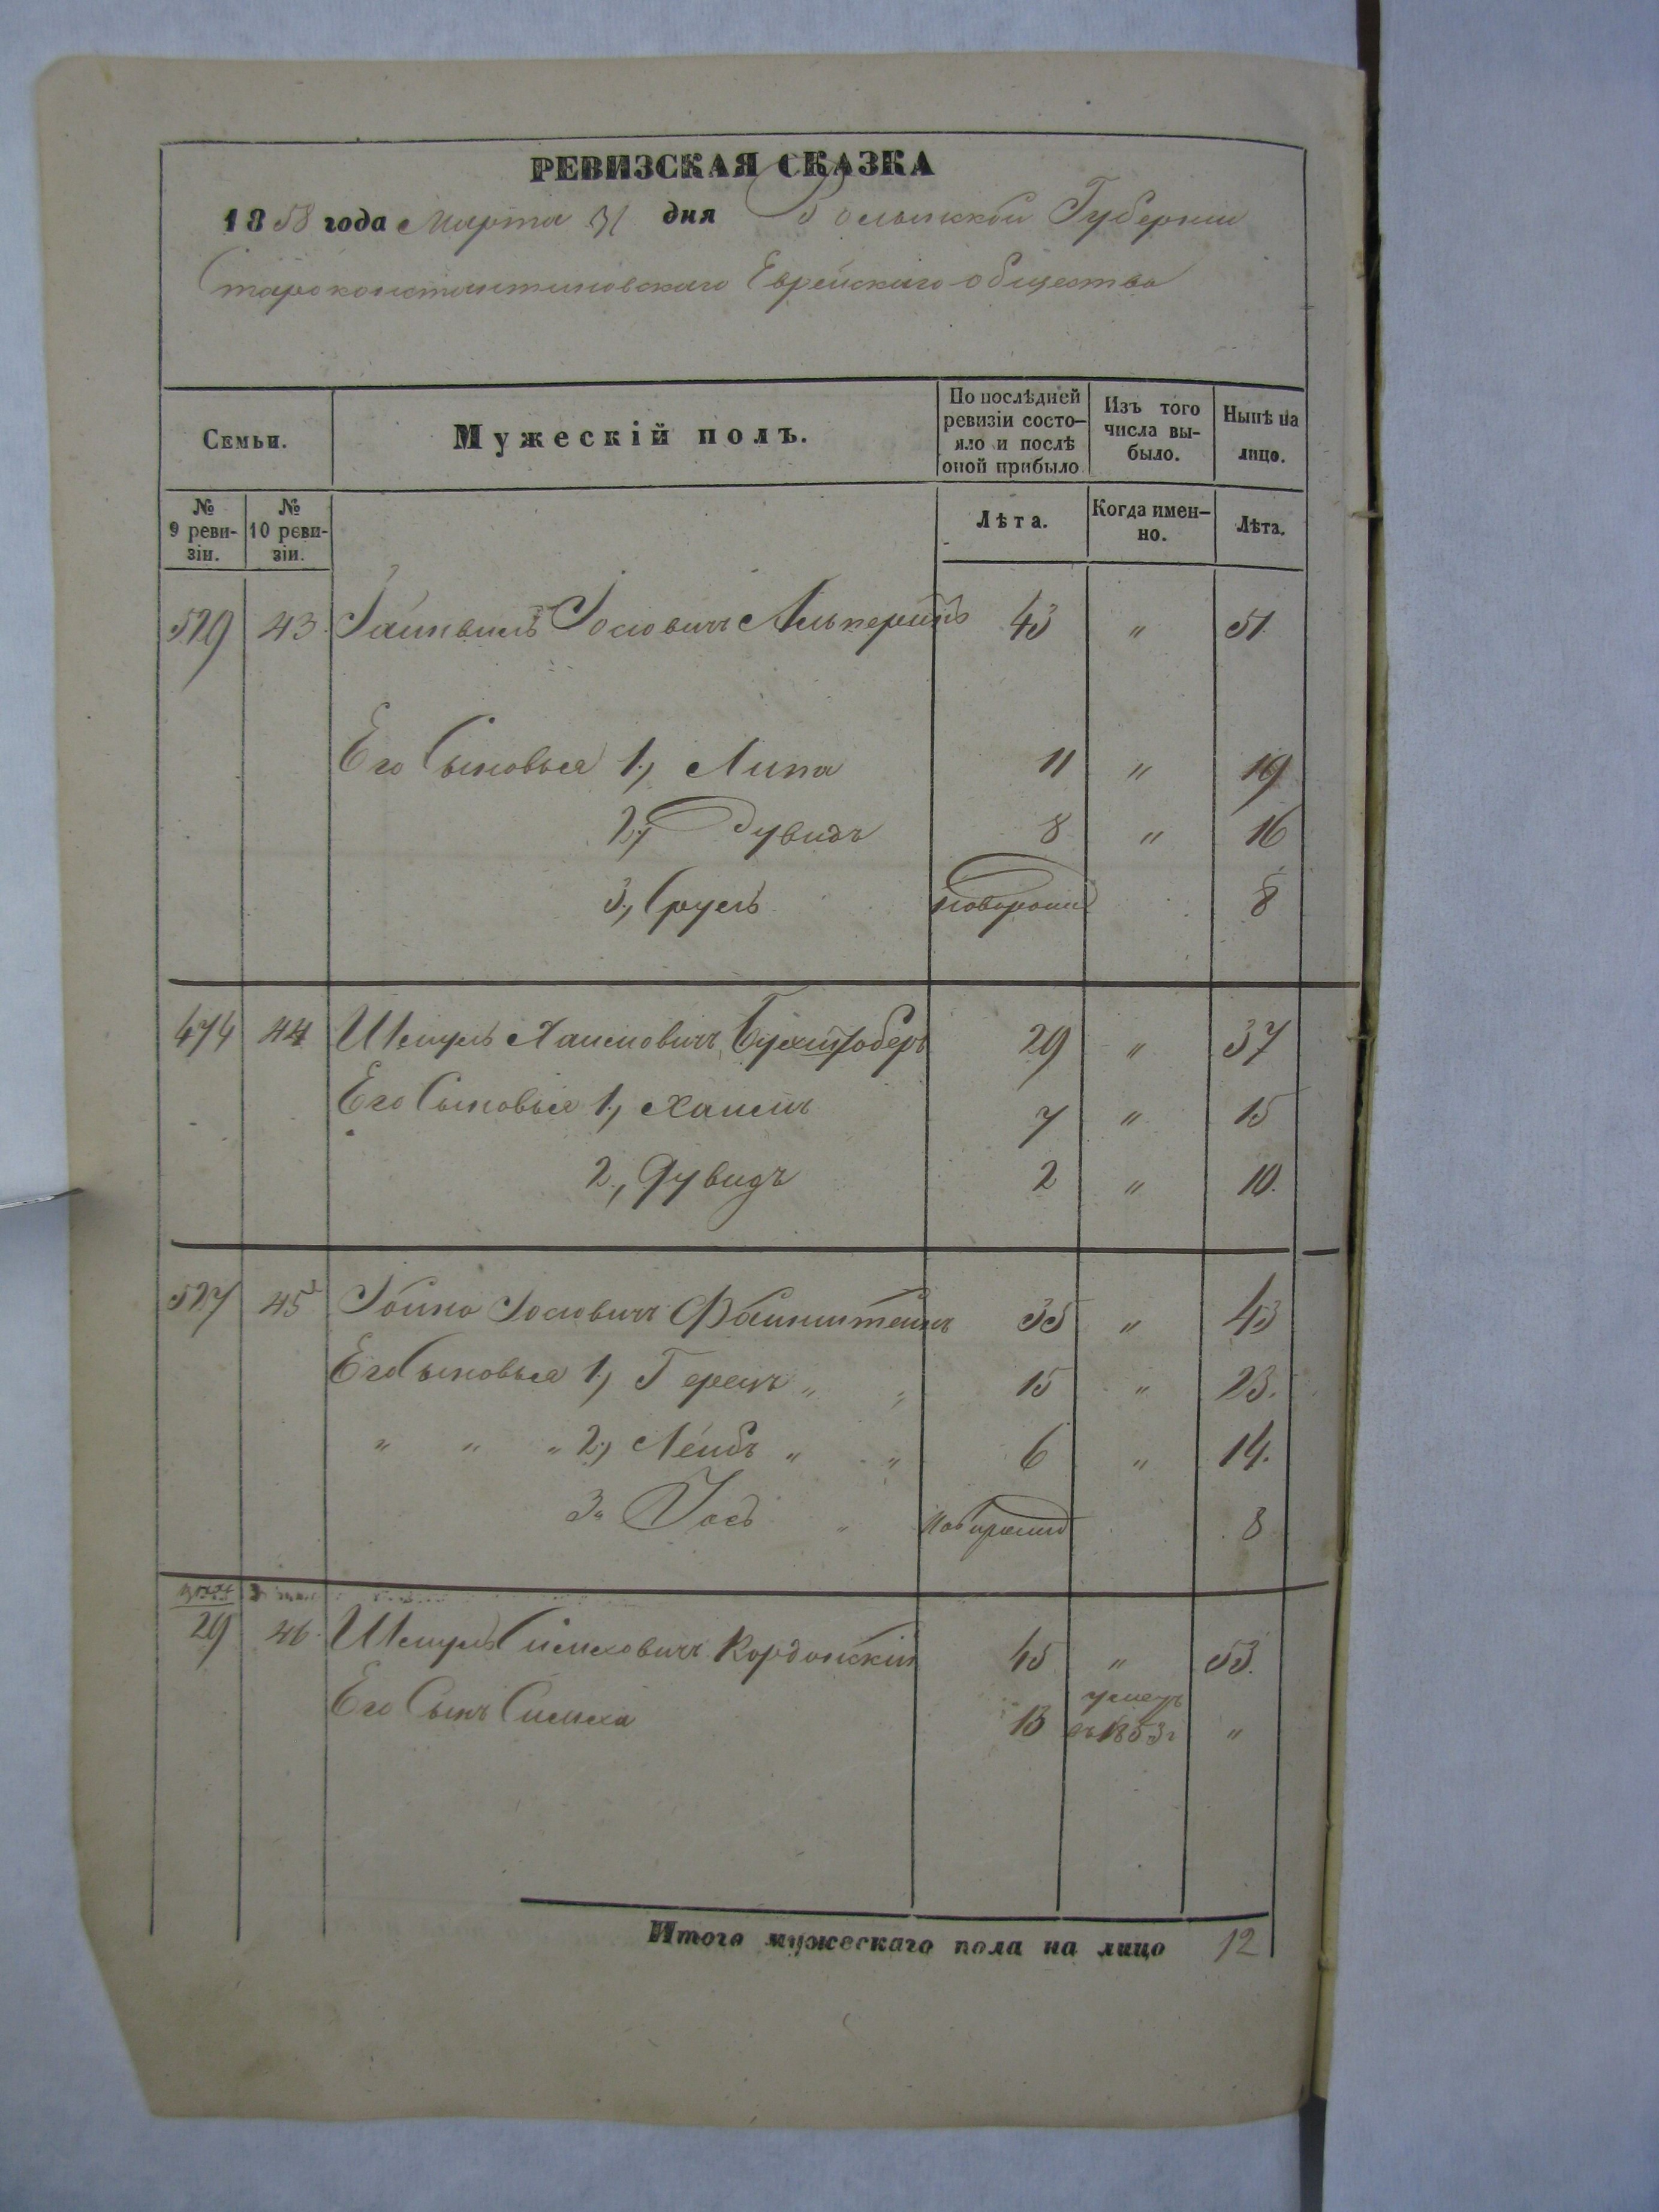 РЕВИЗСКАЯ СКАЗКА
1858 года Марта 31 дня Волынской Губернии
Староконстантиновскаго Еврейскаго общества
Семьи.
Мужескій полъ.
По послѣдней ревизіи состояло и послѣ оной прибыло
Изъ того числа выбыло.
Нынѣ на лицо.
№ 9 ревизіи.
№ 10 ревизіи.
Лѣта.
Когда именно.
Лѣта.
529 43 Іосіовичъ Альперинъ 43 " 51
Его Сыновья 1., Липа 11 " 19
2., Дувидъ 8 " 16
3., Сруль новорожд 8
474 44 Шмуль Хаимовичъ 29 " 37
Его Сыновья 1., Хаимъ 7 " 15
2., Дувидъ 2 " 10.
527 45 Іойно Іосіовичъ Файнштейнъ 35 " 43
Его Сыновья 1., Герецъ " " 15 " 23.
" " " 2., Лейбъ " " 6 " 14.
3" Іось " новорожд 8
29 46. Шмуль Симховичъ Кордонскій 45 " 53.
Его Сынъ Симха 13 умеръ въ 1853 г "
Итого мужескаго пола на лицо 12